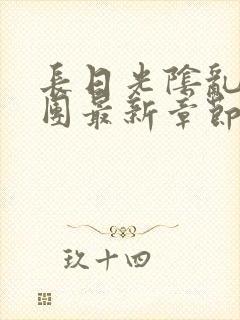 長日光陰亂
團最新章節
玖十四